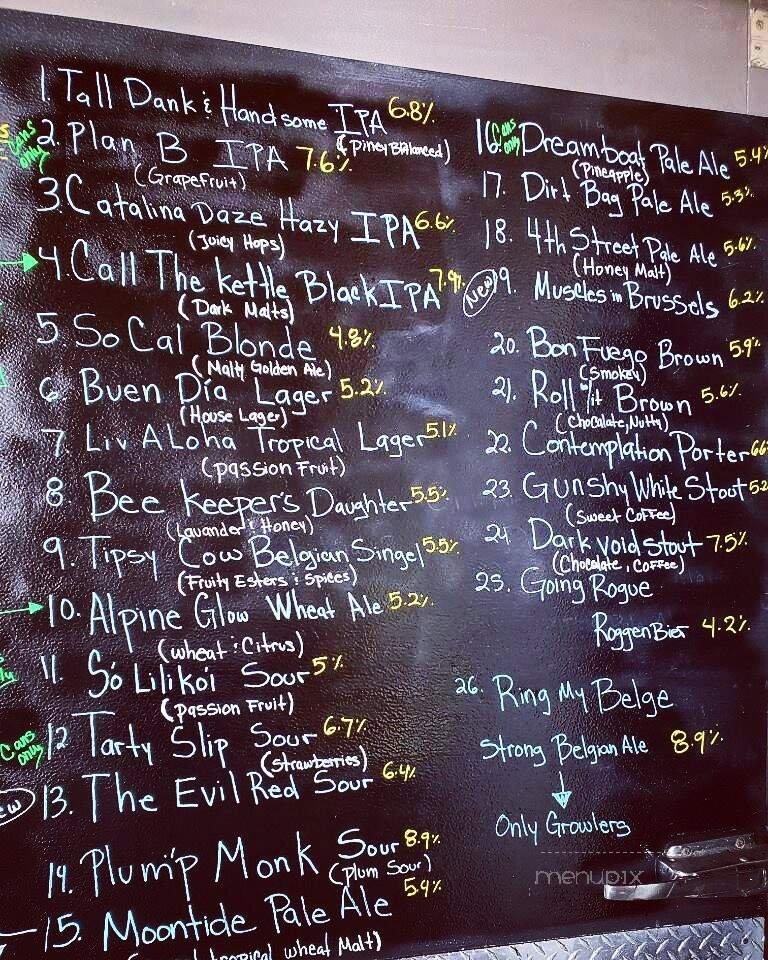 1. Tall Dank & Handsome IPA 6.8%
(Piney Balanced)
Cans only 2. Plan B IPA 7.6%
(Grapefruit)
3. Catalina Daze Hazy IPA 6.6%
(Juicy Hops)
4. Call The Kettle Black IPA 7.9%
(Dark Malts)
5 So Cal Blonde 4.8%
(Malty Golden Ale)
6 Buen Día Lager 5.2%
(House Lager)
7. Liv ALoha Tropical Lager 5.1%
(passion Fruit)
8. Bee Keeper's Daughter 5.5%
(Lavander & Honey)
9. Tipsy Cow Belgian Singel 5.5%
(Fruity Esters & Spices)
10. Alpine Glow Wheat Ale 5.2%
(wheat & Citrus)
11. Só Lilikói Sour 5%
(passion Fruit)
Cans only 12 Tarty Slip Sour 6.7%
(Strawberries)
13. The Evil Red Sour 6.4%
14. Plum'p Monk Sour 8.9%
(Plum Sour)
15. Moontide Pale Ale 5.4%
tropical wheat Malt)
16. Cans only Dreamboat Pale Ale 5.4%
(Pineapple)
17. Dirt Bag Pale Ale 5.3%
18. 4th Street Pale Ale 5.6%
(Honey Malt)
New 19. Muscles in Brussels 6.2%
20. Bon Fuego Brown 5.9%
(Smokey)
21. Roll it Brown 5.6%
(Chocalate, Nutty)
22. Contemplation Porter 6.6
23. Gunshy White Stout 5.2
(Sweet Coffee)
24. Dark void Stout 7.5%
(Chocolate, Coffee)
25. Going Rogue
RoggenBier 4.2%
26. Ring My Belge
Strong Belgian Ale 8.9%
Only Growlers
menupix